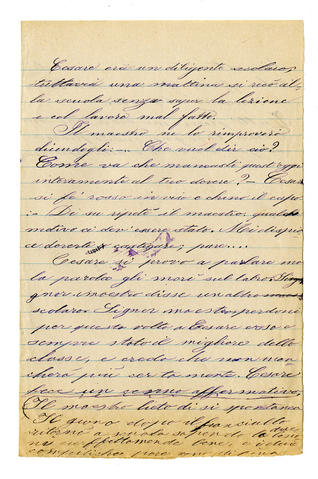 Cesare era un diligente scolaro,
tuttavia una mattina si recò al-
la scuola senza saper la lezione
e col lavoro mal fatto.
Il maestro ne lo rimproverò
dicendogli:— Che vuol dir ciò?
Come va che mancasti quest'oggi
interamente al tuo dovere?— Cesare
si fè rosso in viso e chinò il capo.
:— Dì su ripetè il maestro, qualche
motivo ci dev'essere stato. Mi dispia
ce doverti castigare, pure....
Cesare si provò a parlare ma
la parola gli morì sul labro.
gnor maestro disse un altro
scolaro. Signor maestro perdoni
per questa volta a Cesare esso è
sempre stato il migliore della
classe, e credo che non man
cherà più ser tamente. Cesare
fece un cenno affermativo,
Il maestro lieto di sì spontanea
Il giorno dopo il fanciullo
ritornò a scuola sapendo la lezio